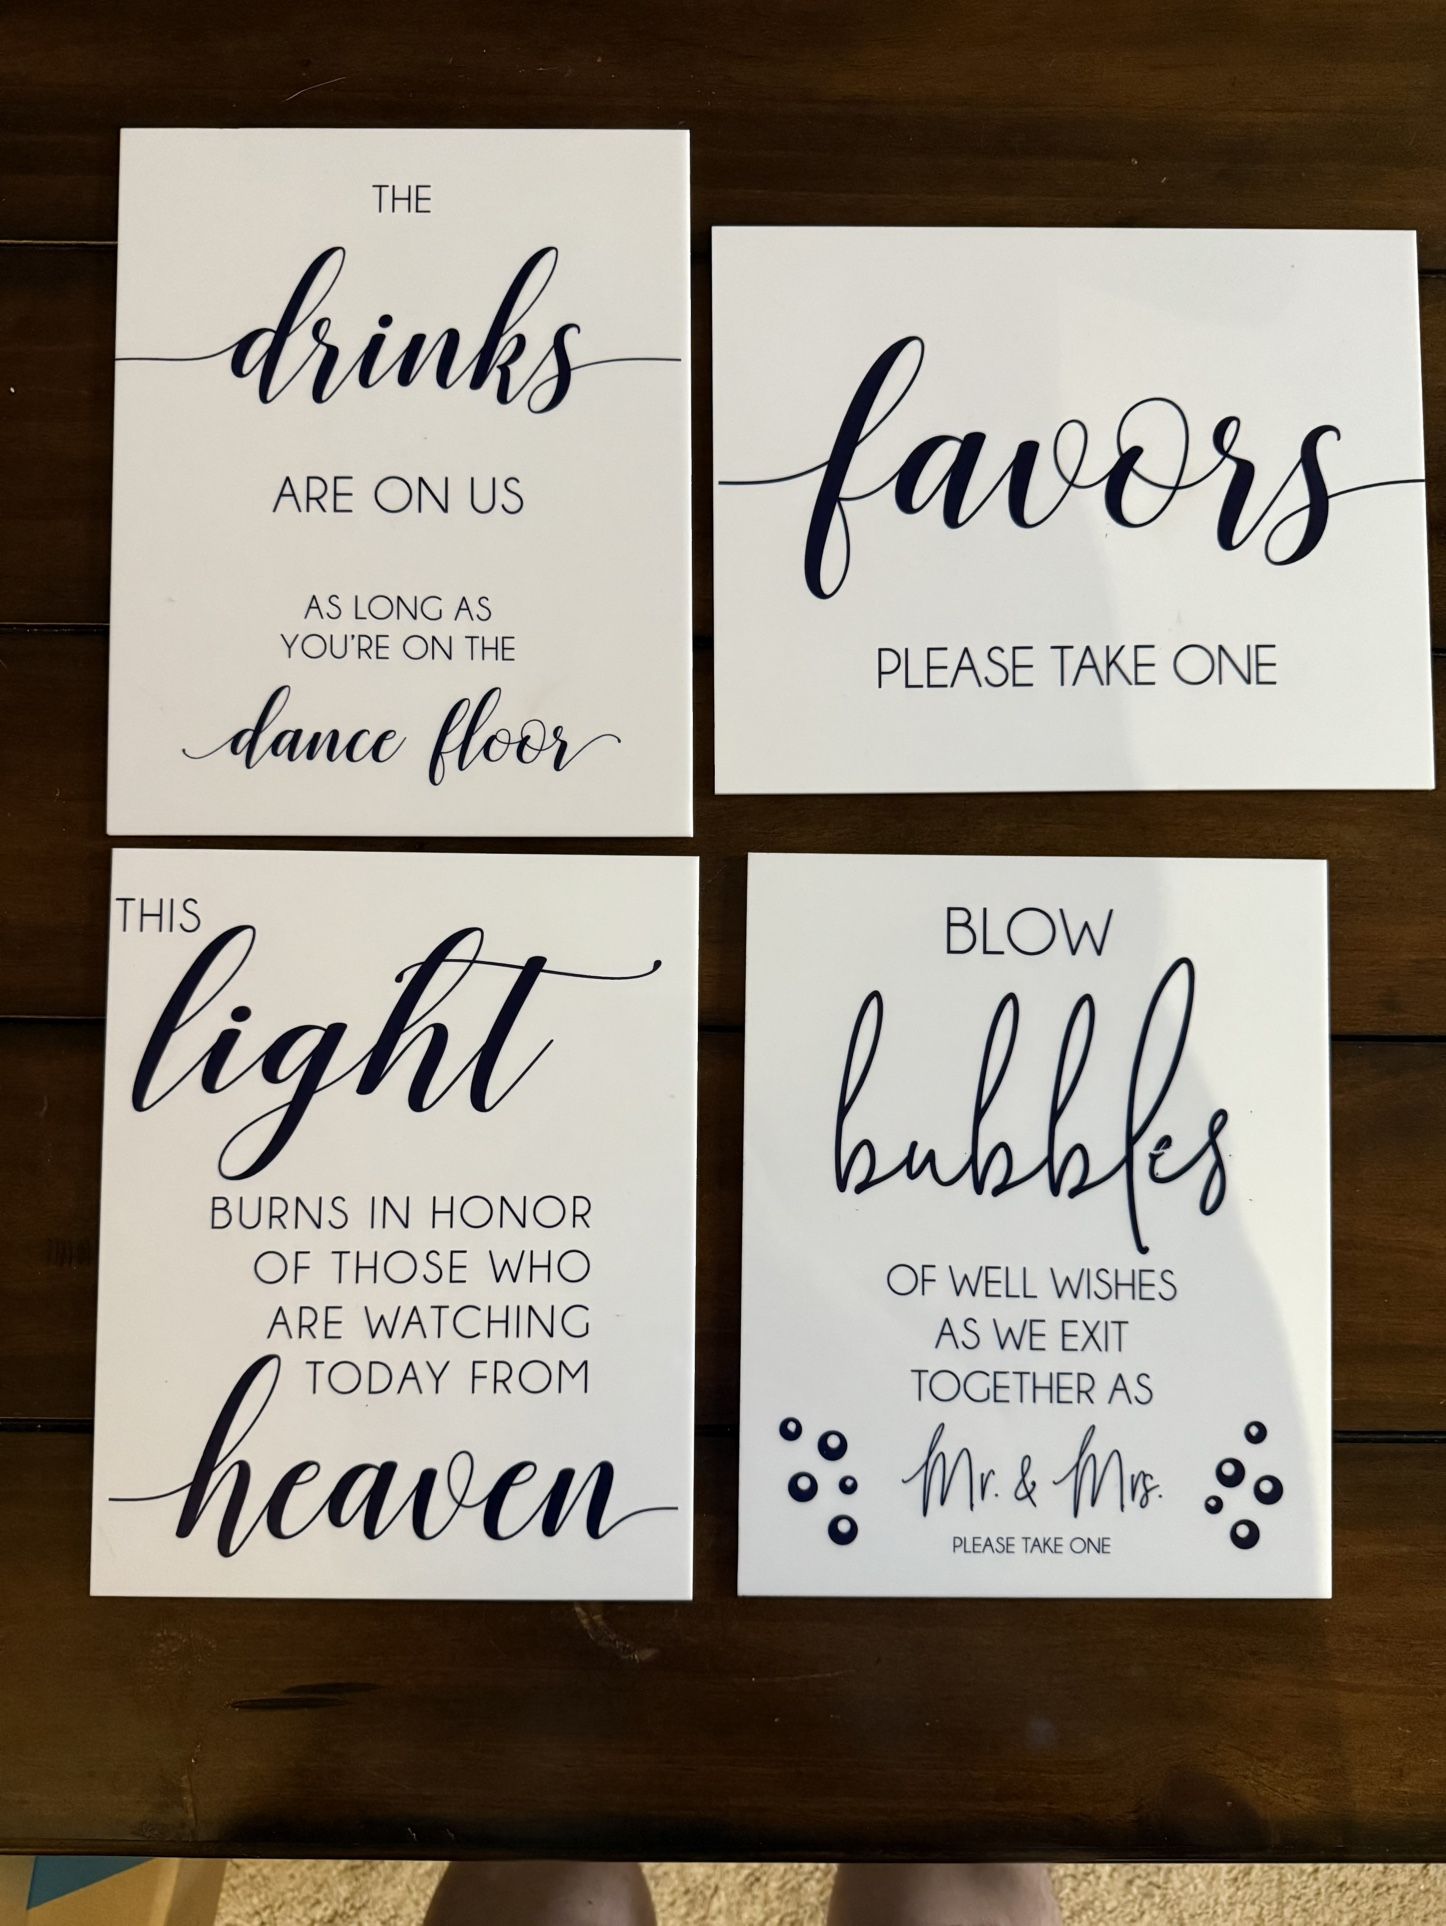 THE
drinks
ARE ON US
AS LONG AS
YOU'RE ON THE
dance floor
favors
PLEASE TAKE ONE
THIS
light
BURNS IN HONOR
OF THOSE WHO
ARE WATCHING
TODAY FROM
heaven
BLOW
bubbles
OF WELL WISHES
AS WE EXIT
TOGETHER AS
Mr. & Mrs.
PLEASE TAKE ONE